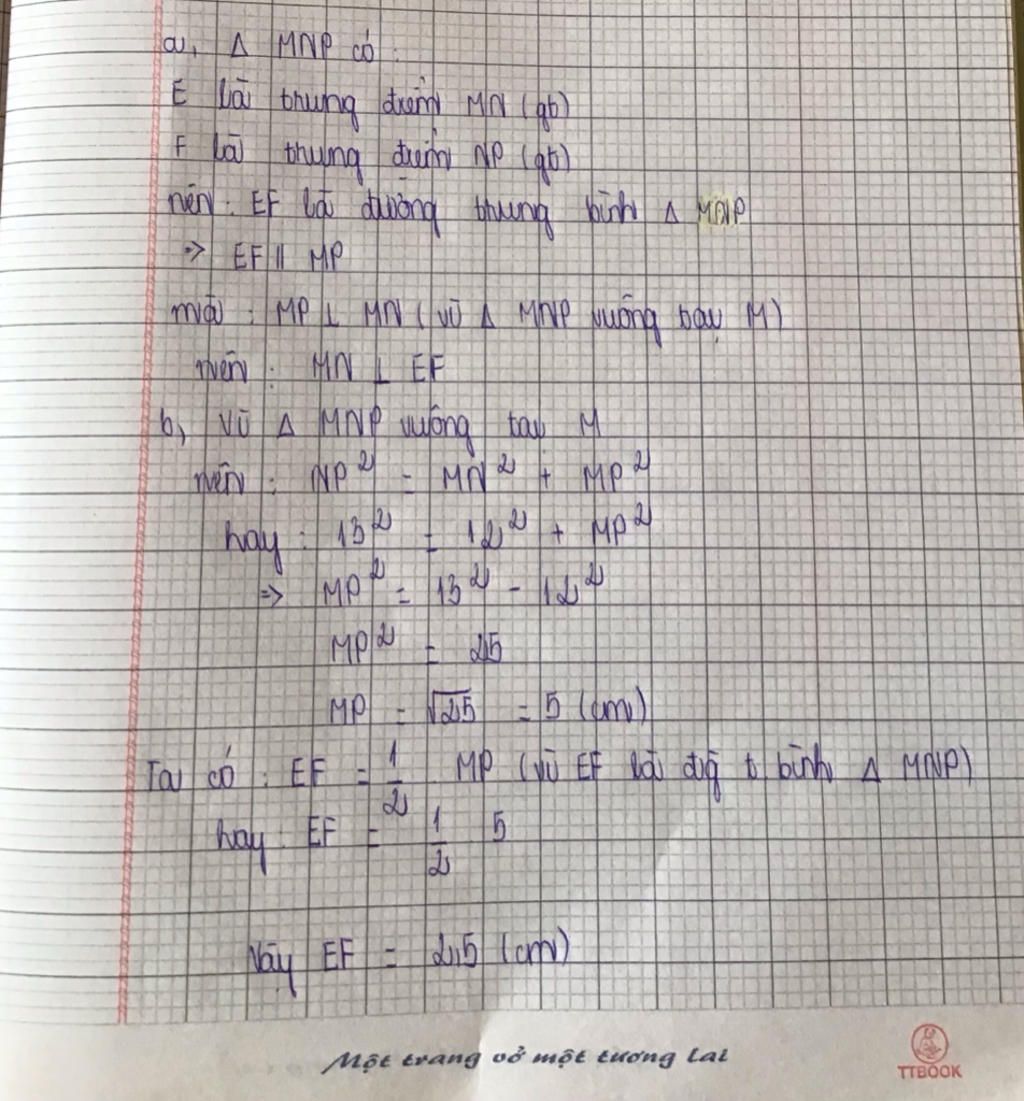 a, Δ MNP có:
E là trung điểm MN (gt)
F là trung điểm NP (gt)
nên: EF là đường trung bình Δ MNP
=> EF || MP
mà: MP ⊥ MN (vì Δ MNP vuông tại M)
nên: MN ⊥ EF
b, Vì Δ MNP vuông tại M
nên: NP² = MN² + MP²
hay: 13² = 12² + MP²
=> MP² = 13² - 12²
MP² = 25
MP = √25 = 5 (cm)
Ta có: EF = 1/2 MP (vì EF là đg t bình Δ MNP)
hay: EF = 1/2 5
Vậy EF = 2,5 (cm)
Một trang vở một tương lai
TTBOOK